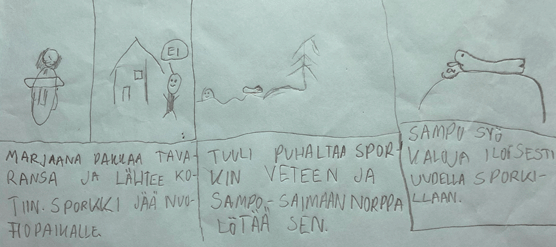 EI
MARJAANA PAKKAA TAVA-
RANSA JA LÄHTEE KO-
TIIN. SPORKKI JÄÄ NUO-
TIOPAIKALLE.
TUULI PUHALTAA SPOR-
KIN VETEEN JA
SAMPO-SAIMAANNORPPA
LÖTÄÄ SEN.
SAMPO SYÖ
KALOJA ILOISESTI
UUDELLA SPORKI-
LLAAN.